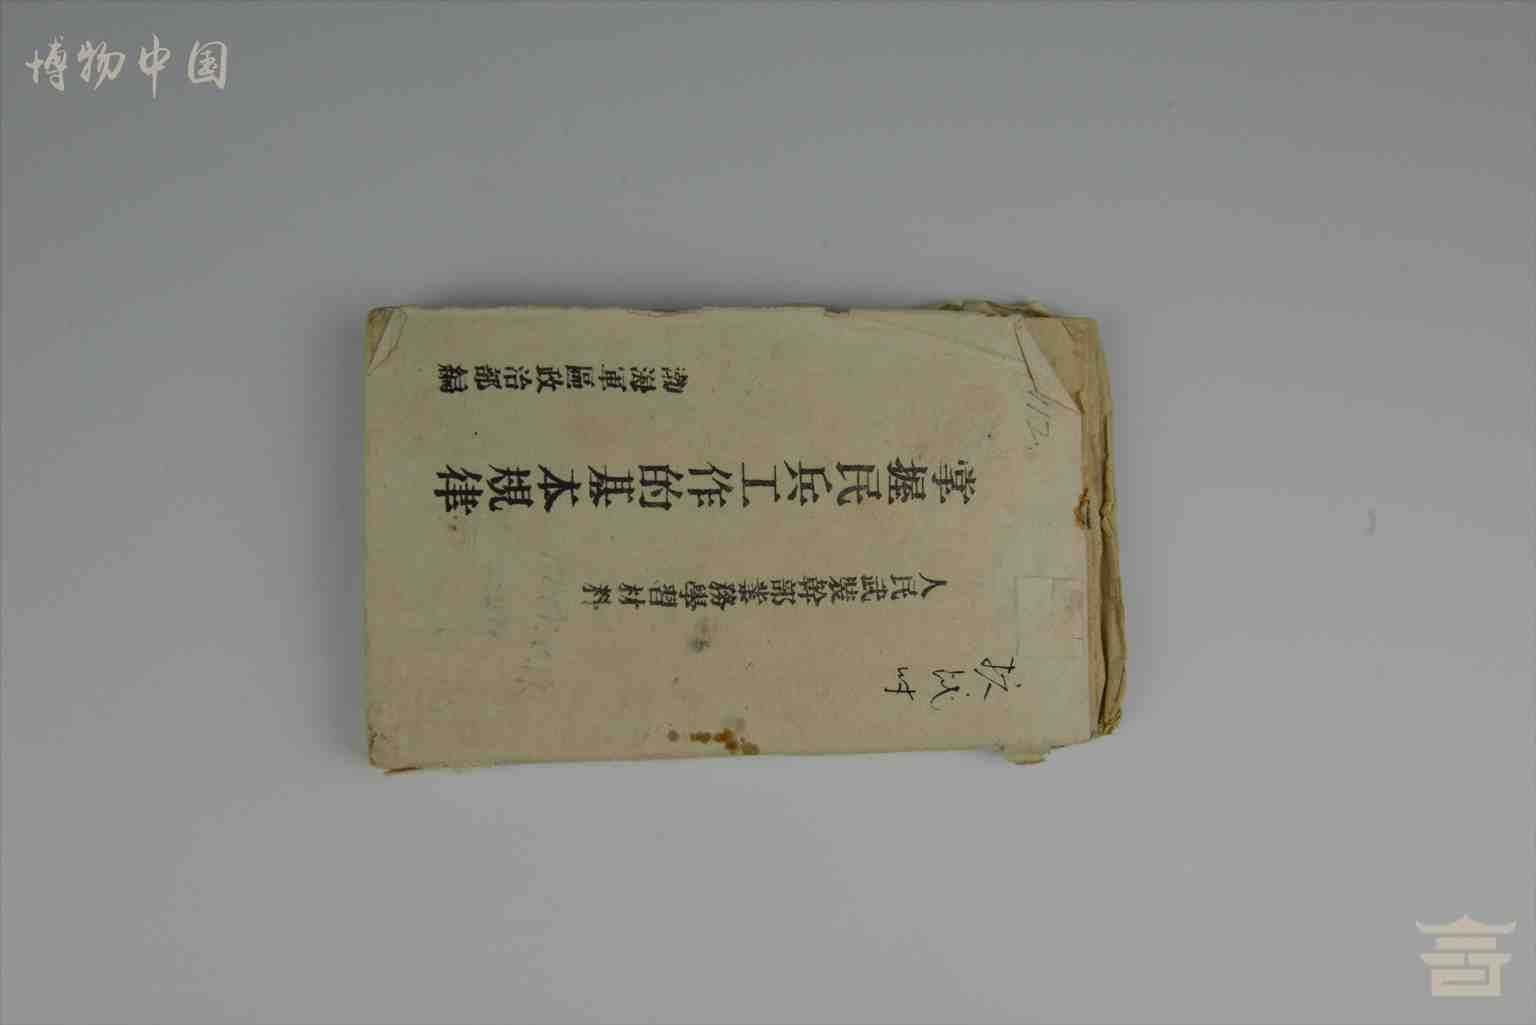 博物中国
人民武裝幹部業務學習材料
掌握民兵工作的基本規律
渤海軍區政治部編